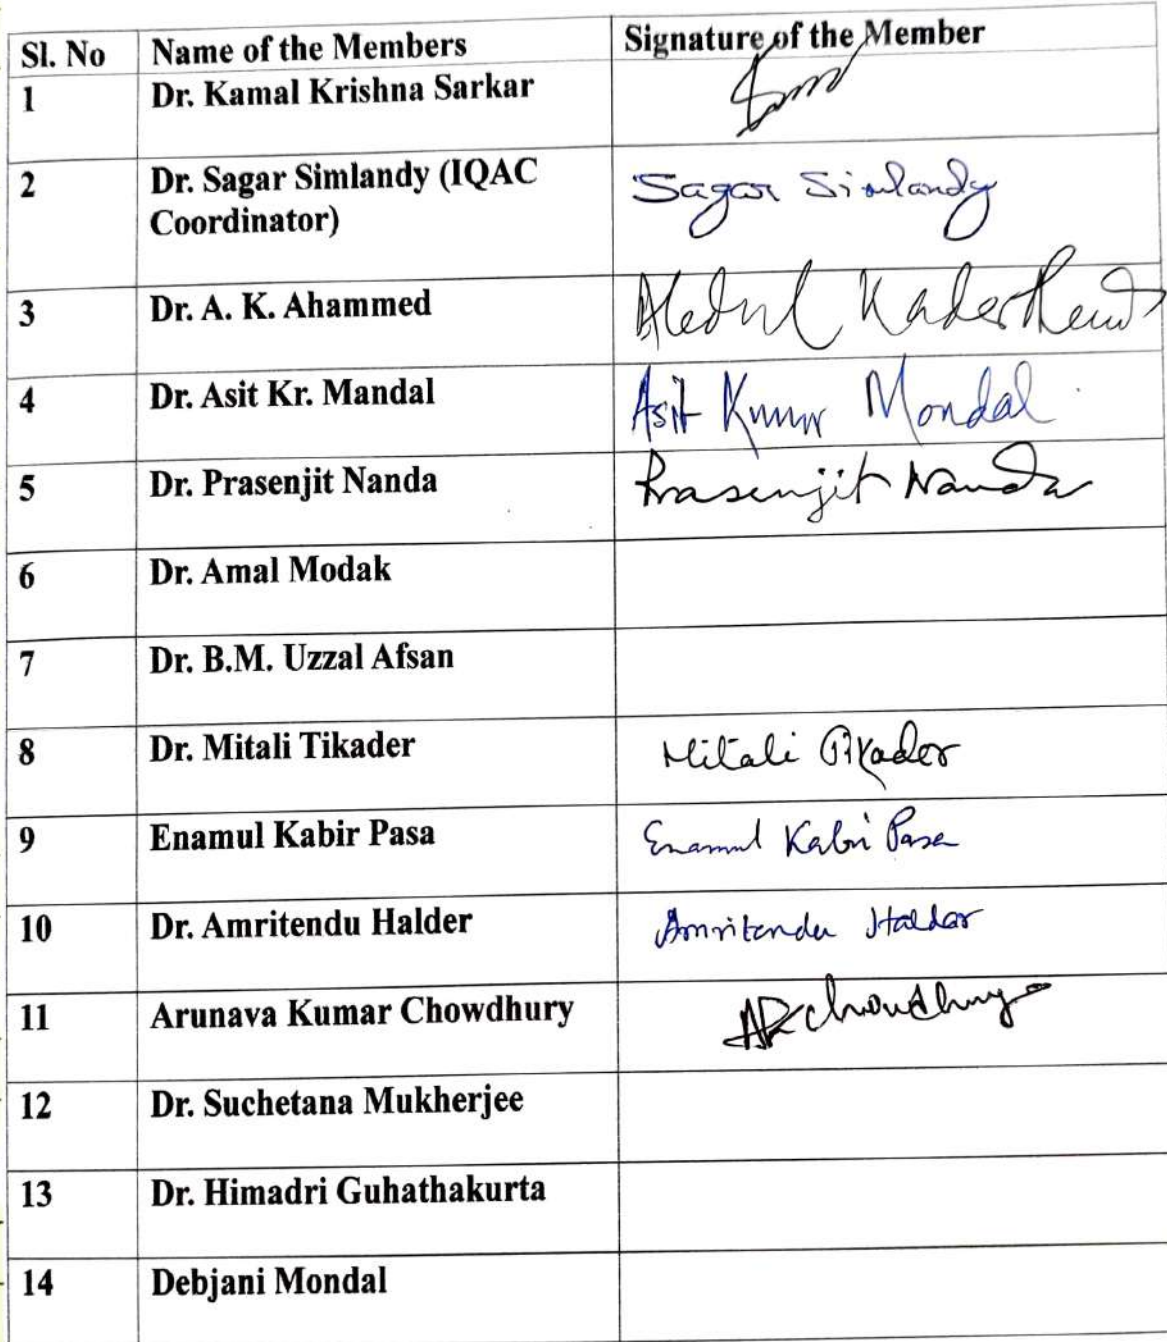 Sl. No Name of the Members Signature of the Member
1 Dr. Kamal Krishna Sarkar
2 Dr. Sagar Simlandy (IQAC Sagar Simlandy
Coordinator)
3 Dr. A. K. Ahammed Kader
4 Dr. Asit Kr. Mandal Asit Kumar Mondal
5 Dr. Prasenjit Nanda Prasenjit Nanda
6 Dr. Amal Modak
7 Dr. B.M. Uzzal Afsan
8 Dr. Mitali Tikader Mitali Tikader
9 Enamul Kabir Pasa Enamul Kabir Pasa
10 Dr. Amritendu Halder Amritendu Haldar
11 Arunava Kumar Chowdhury AKChowdhury
12 Dr. Suchetana Mukherjee
13 Dr. Himadri Guhathakurta
14 Debjani Mondal